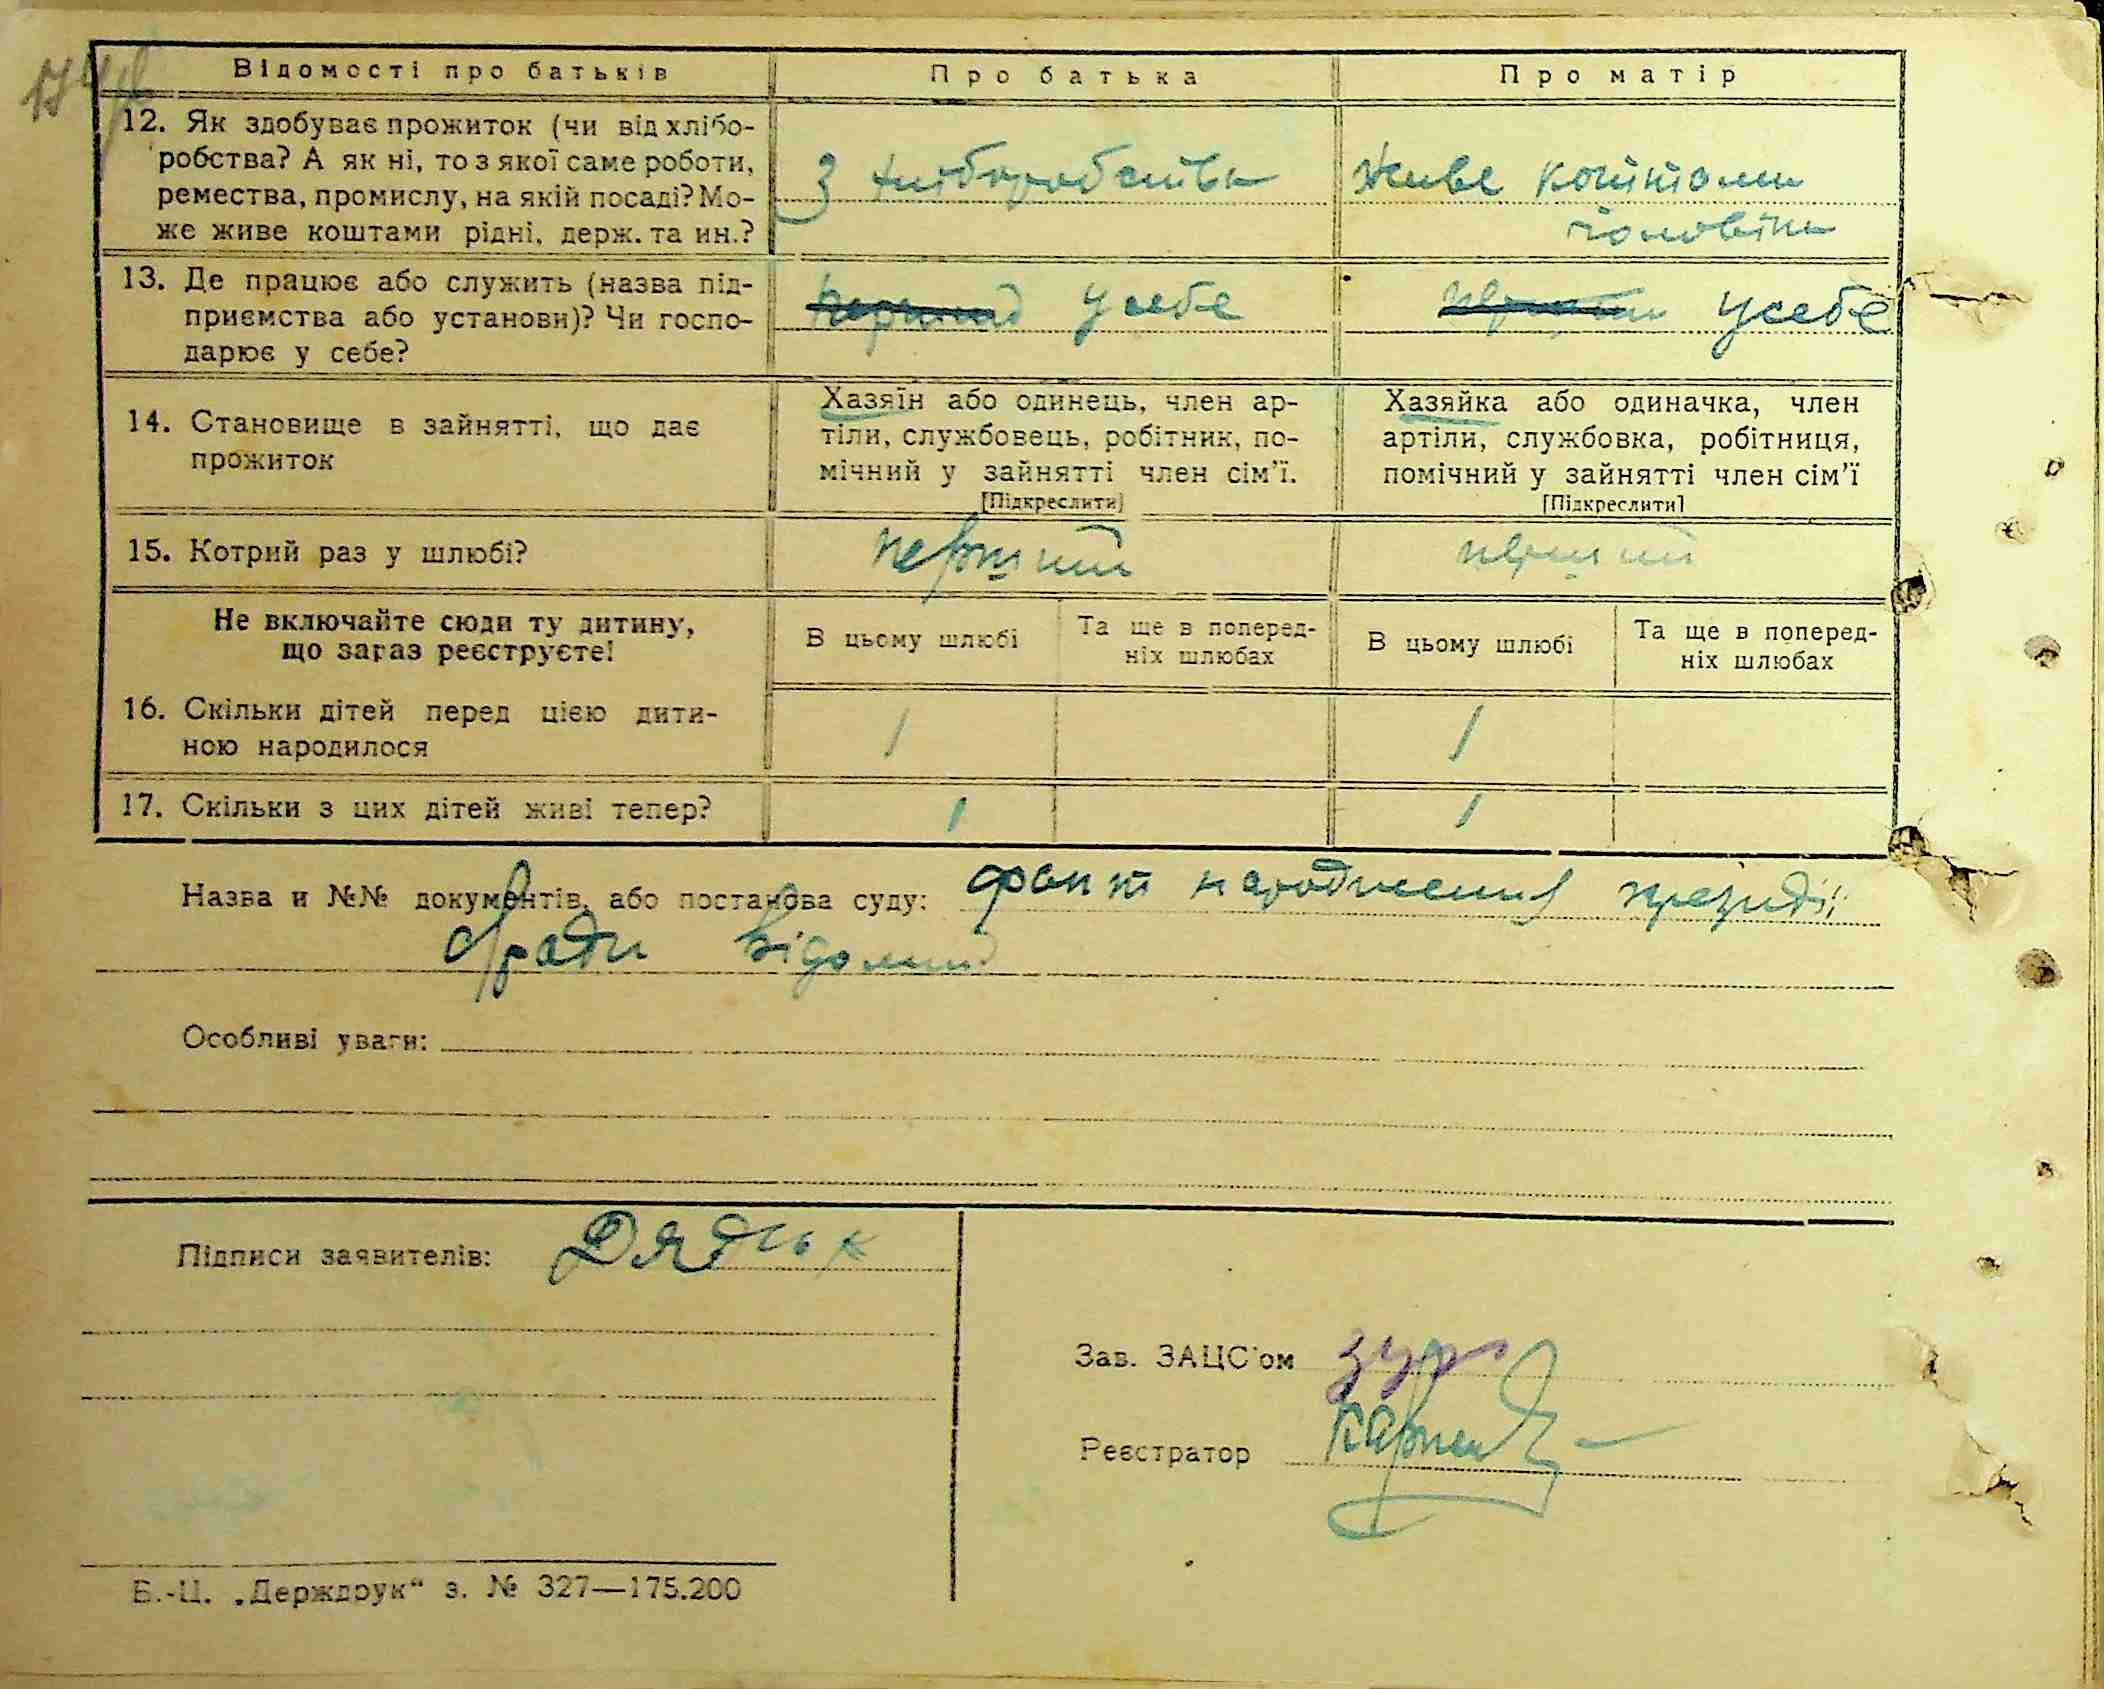 Відомості про батьків Про батька Про матір
12. Як здобуває прожиток (чи від хлібо-
робства? А як ні, то з якої саме роботи,
ремества, промислу, на якій посаді? Мо-
же живе коштами рідні, держ. та ин.?
З хліборобства
живе коштами
чоловіка
13. Де працює або служить (назва під-
приємства або установи)? Чи госпо-
дарює у себе?
у себе
у себе
14. Становище в зайнятті, що дає
прожиток
Хазяїн або одинець, член ар-
тіли, службовець, робітник, по-
мічний у зайнятті член сім'ї.
[Підкреслити]
Хазяйка або одиначка, член
артіли, службовка, робітниця,
помічний у зайнятті член сім'ї
[Підкреслити]
15. Котрий раз у шлюбі? перший перший
Не включайте сюди ту дитину,
що зараз реєструєте!
В цьому шлюбі
Та ще в поперед-
ніх шлюбах
В цьому шлюбі
Та ще в поперед-
ніх шлюбах
16. Скільки дітей перед цією дити-
ною народилося
1 1
17. Скільки з цих дітей живі тепер? 1 1
Назва и №№ документів, або постанова суду: факт народження президії
с/ради відомий
Особливі уваги:
Підписи заявителів: Дядык
Зав. ЗАЦС'ом
Реєстратор
Б.-Ц. „Держдрук“ з. № 327—175.200